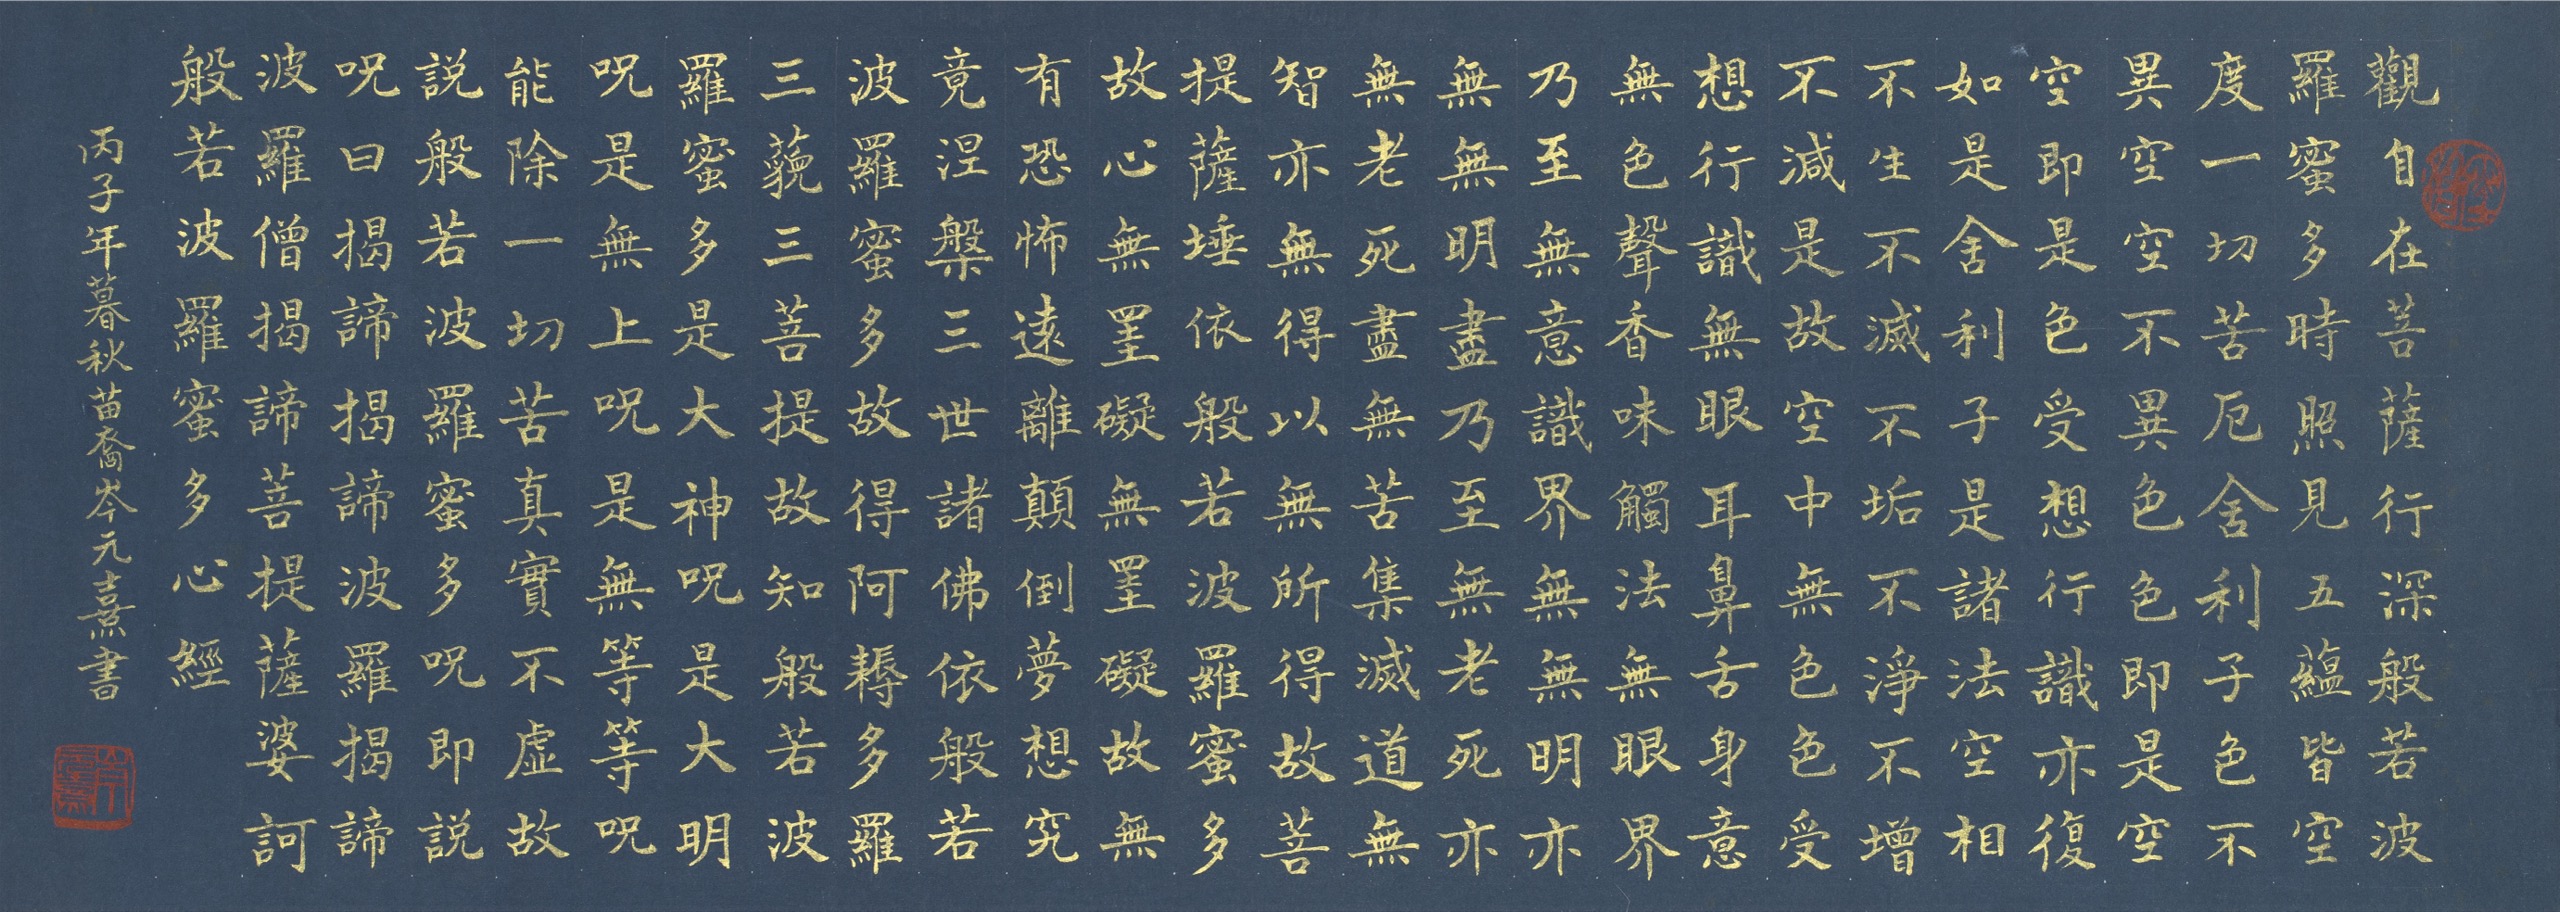 觀自在菩薩行深般若波
羅蜜多時照見五蘊皆空
度一切苦厄舍利子色不
異空空不異色色即是空
空即是色受想行識亦復
如是舍利子是諸法空相
不生不滅不垢不淨不增
不減是故空中無色色受
想行識無眼耳鼻舌身意
無色聲香味觸法無眼界
乃至無意識界無無明亦
無無明盡乃至無老死亦
無老死盡無苦集滅道無
智亦無得以無所得故菩
提薩埵依般若波羅蜜多
故心無罣礙無罣礙故無
有恐怖遠離顛倒夢想究
竟涅槃三世諸佛依般若
波羅蜜多故得阿耨多羅
三藐三菩提故知般若波
羅蜜多是大神呪是大明
呪是無上呪是無等等呪
能除一切苦真實不虛故
説般若波羅蜜多呪即説
呪曰揭諦揭諦波羅揭諦
波羅僧揭諦菩提薩婆訶
般若波羅蜜多心經
丙子年暮秋苗裔岑元熹書